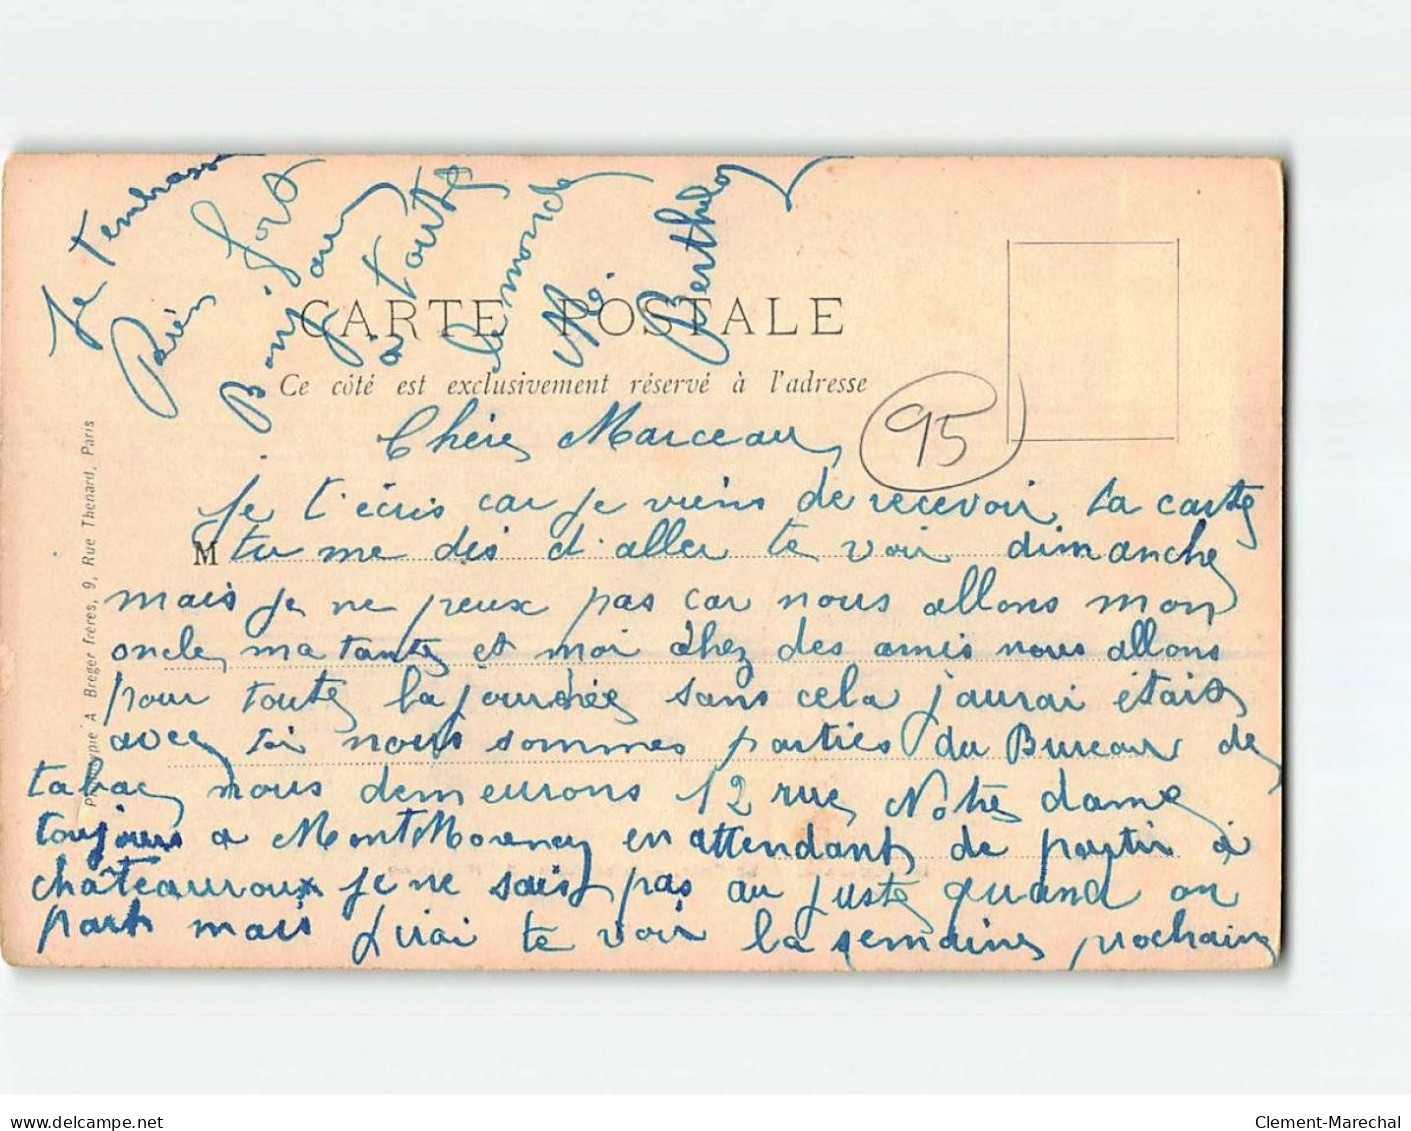 CARTE POSTALE
Ce côté est exclusivement réservé à l'adresse
95
Phototypie A Breger Frères, 9, Rue Thenard, Paris
M
Chère Marceau
Je t'écris car je viens de recevoir ta carte
tu me dis d'aller te voir dimanche
mais je ne peux pas car nous allons mon
oncle, ma tante et moi chez des amis nous allons
pour toute la journée sans cela j'aurai étais
avec toi nous sommes parties du Bureau de
tabac nous demeurons 12 rue Notre dame
toujours a MontMorency en attendant de partir à
châteauroux je ne sais pas au juste quand on
part mais j'irai te voir la semaine prochaine
Je t'embrasse
bien fort
Bonjour
à toute
le monde
Berthelo
delcampe.net
Clement-Marechal